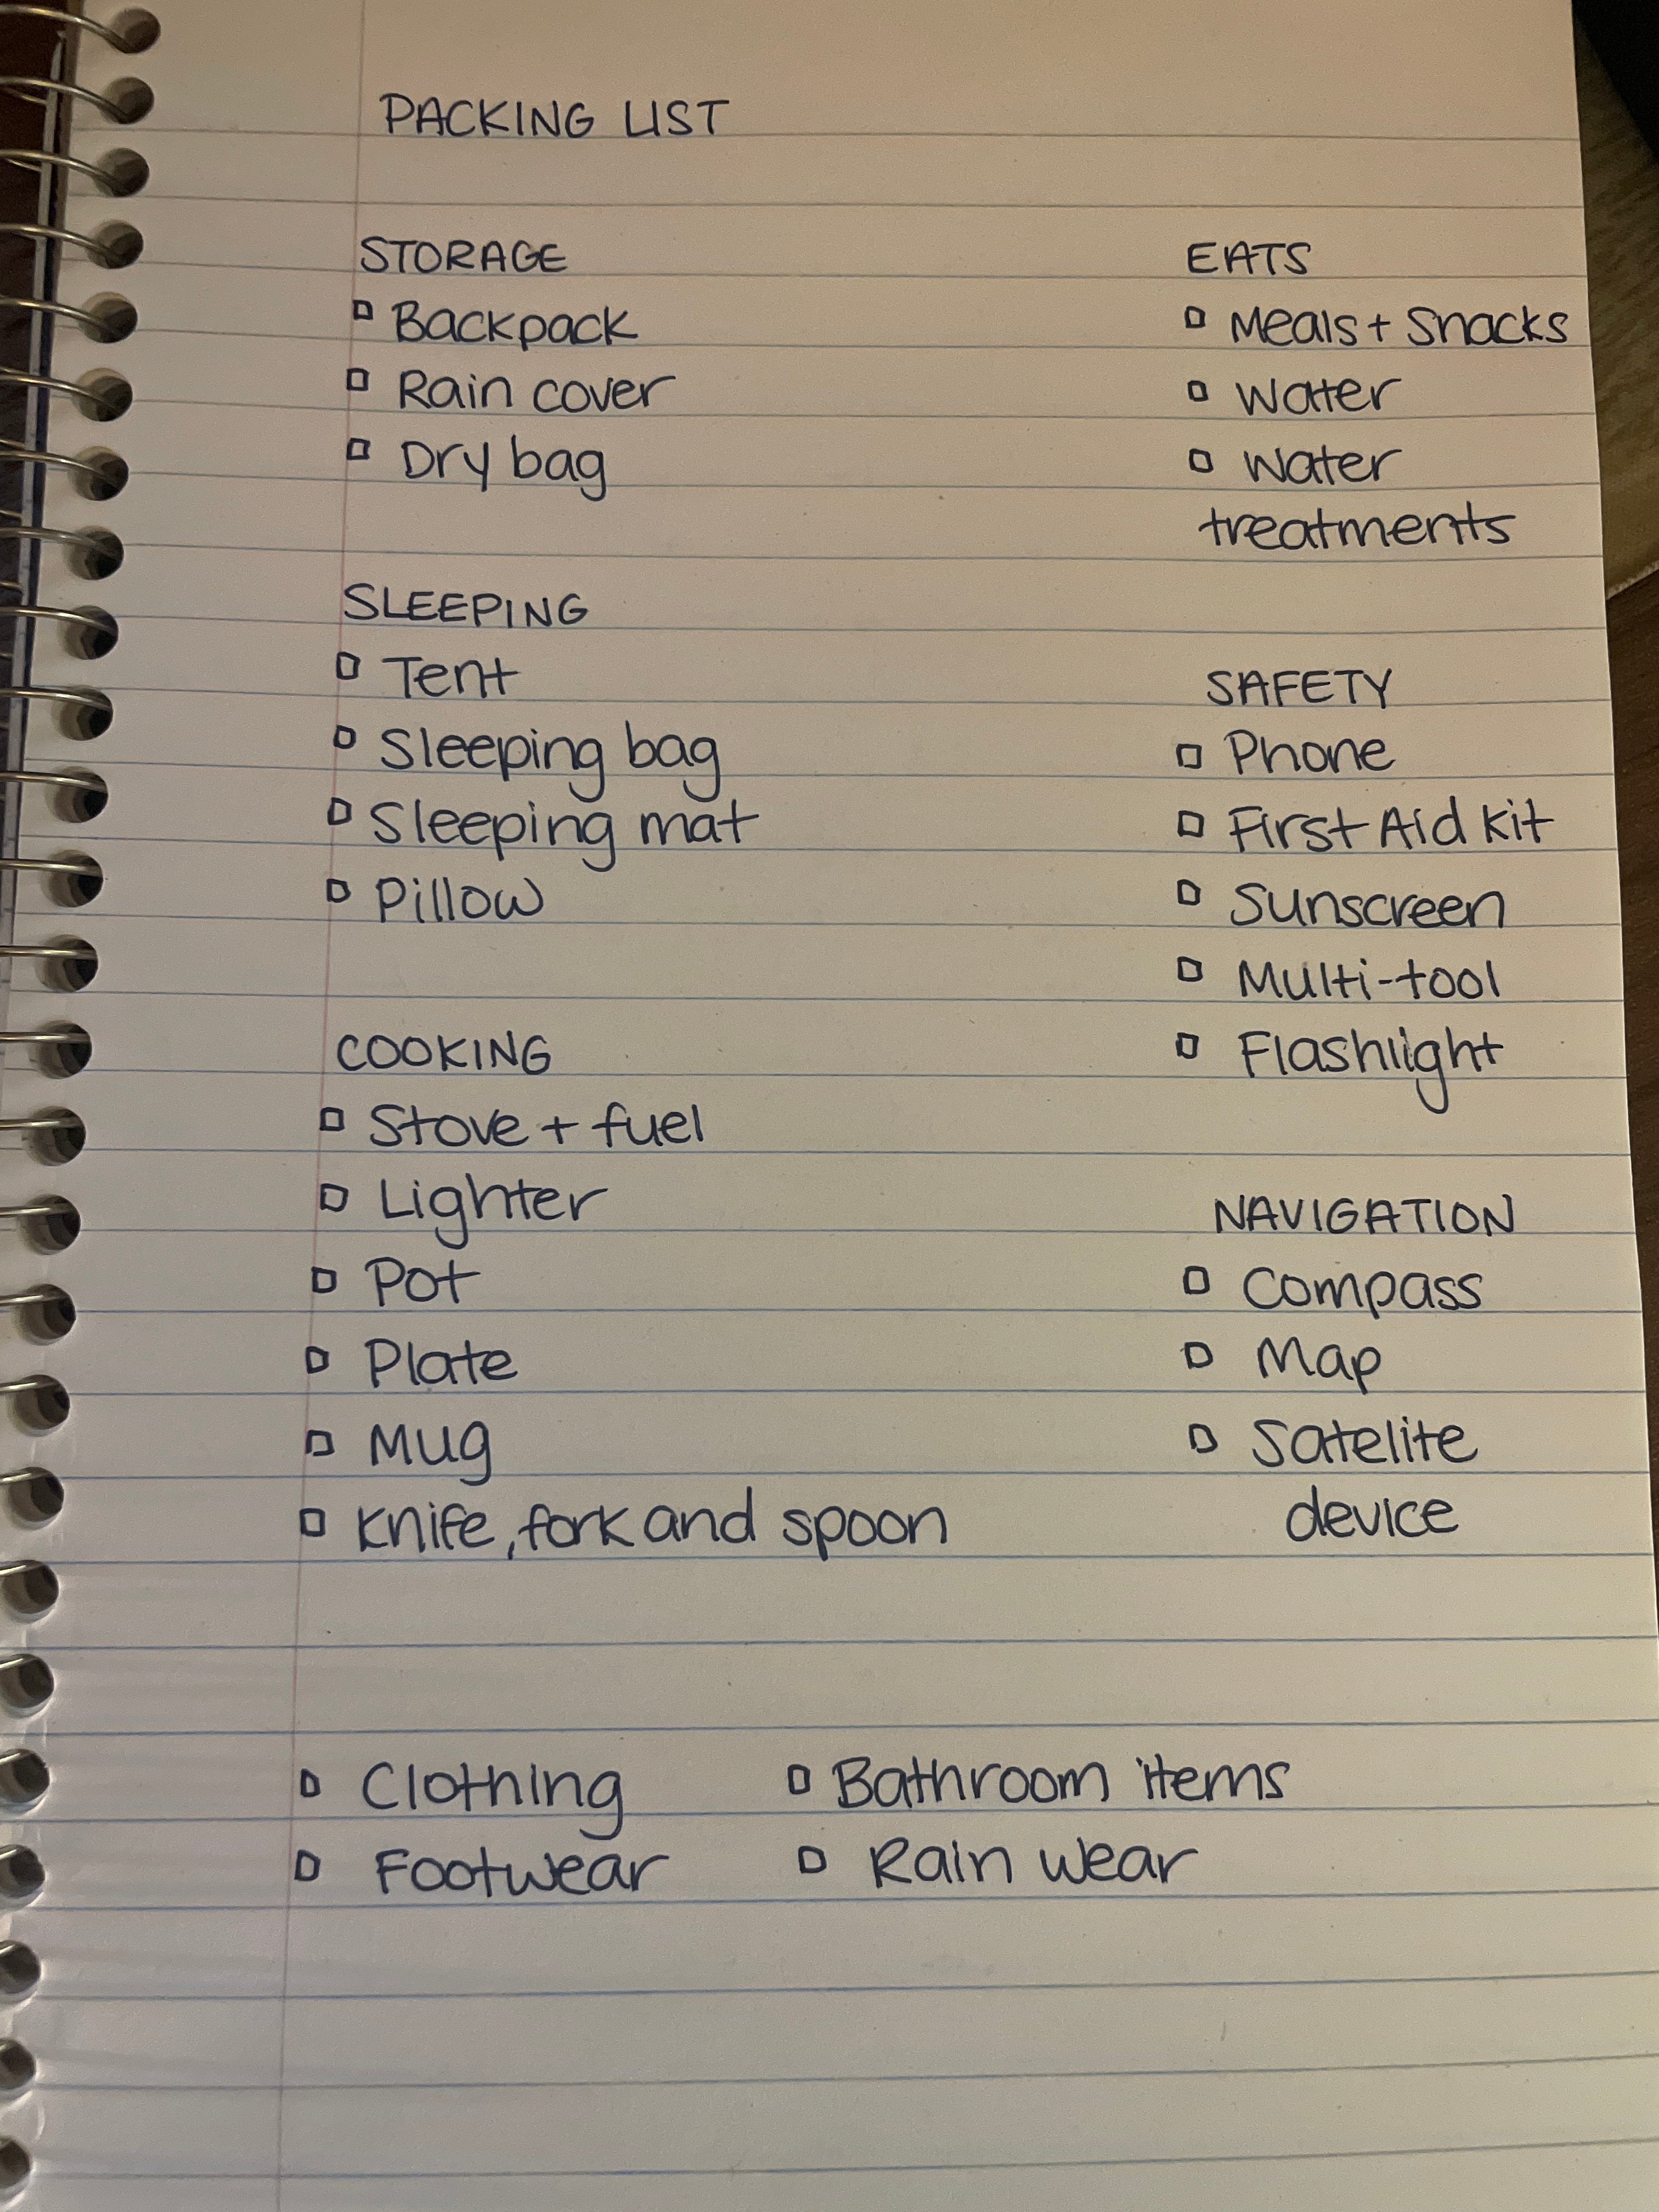 PACKING LIST
STORAGE
Backpack
Rain cover
Dry bag
SLEEPING
Tent
Sleeping bag
Sleeping mat
Pillow
COOKING
Stove + fuel
Lighter
Pot
Plate
Mug
Knife, fork and spoon
EATS
Meals + Snacks
Water
Water
treatments
SAFETY
Phone
First Aid Kit
Sunscreen
Multi-tool
Flashlight
NAVIGATION
Compass
Map
Satelite
device
Clothing
Footwear
Bathroom items
Rain wear